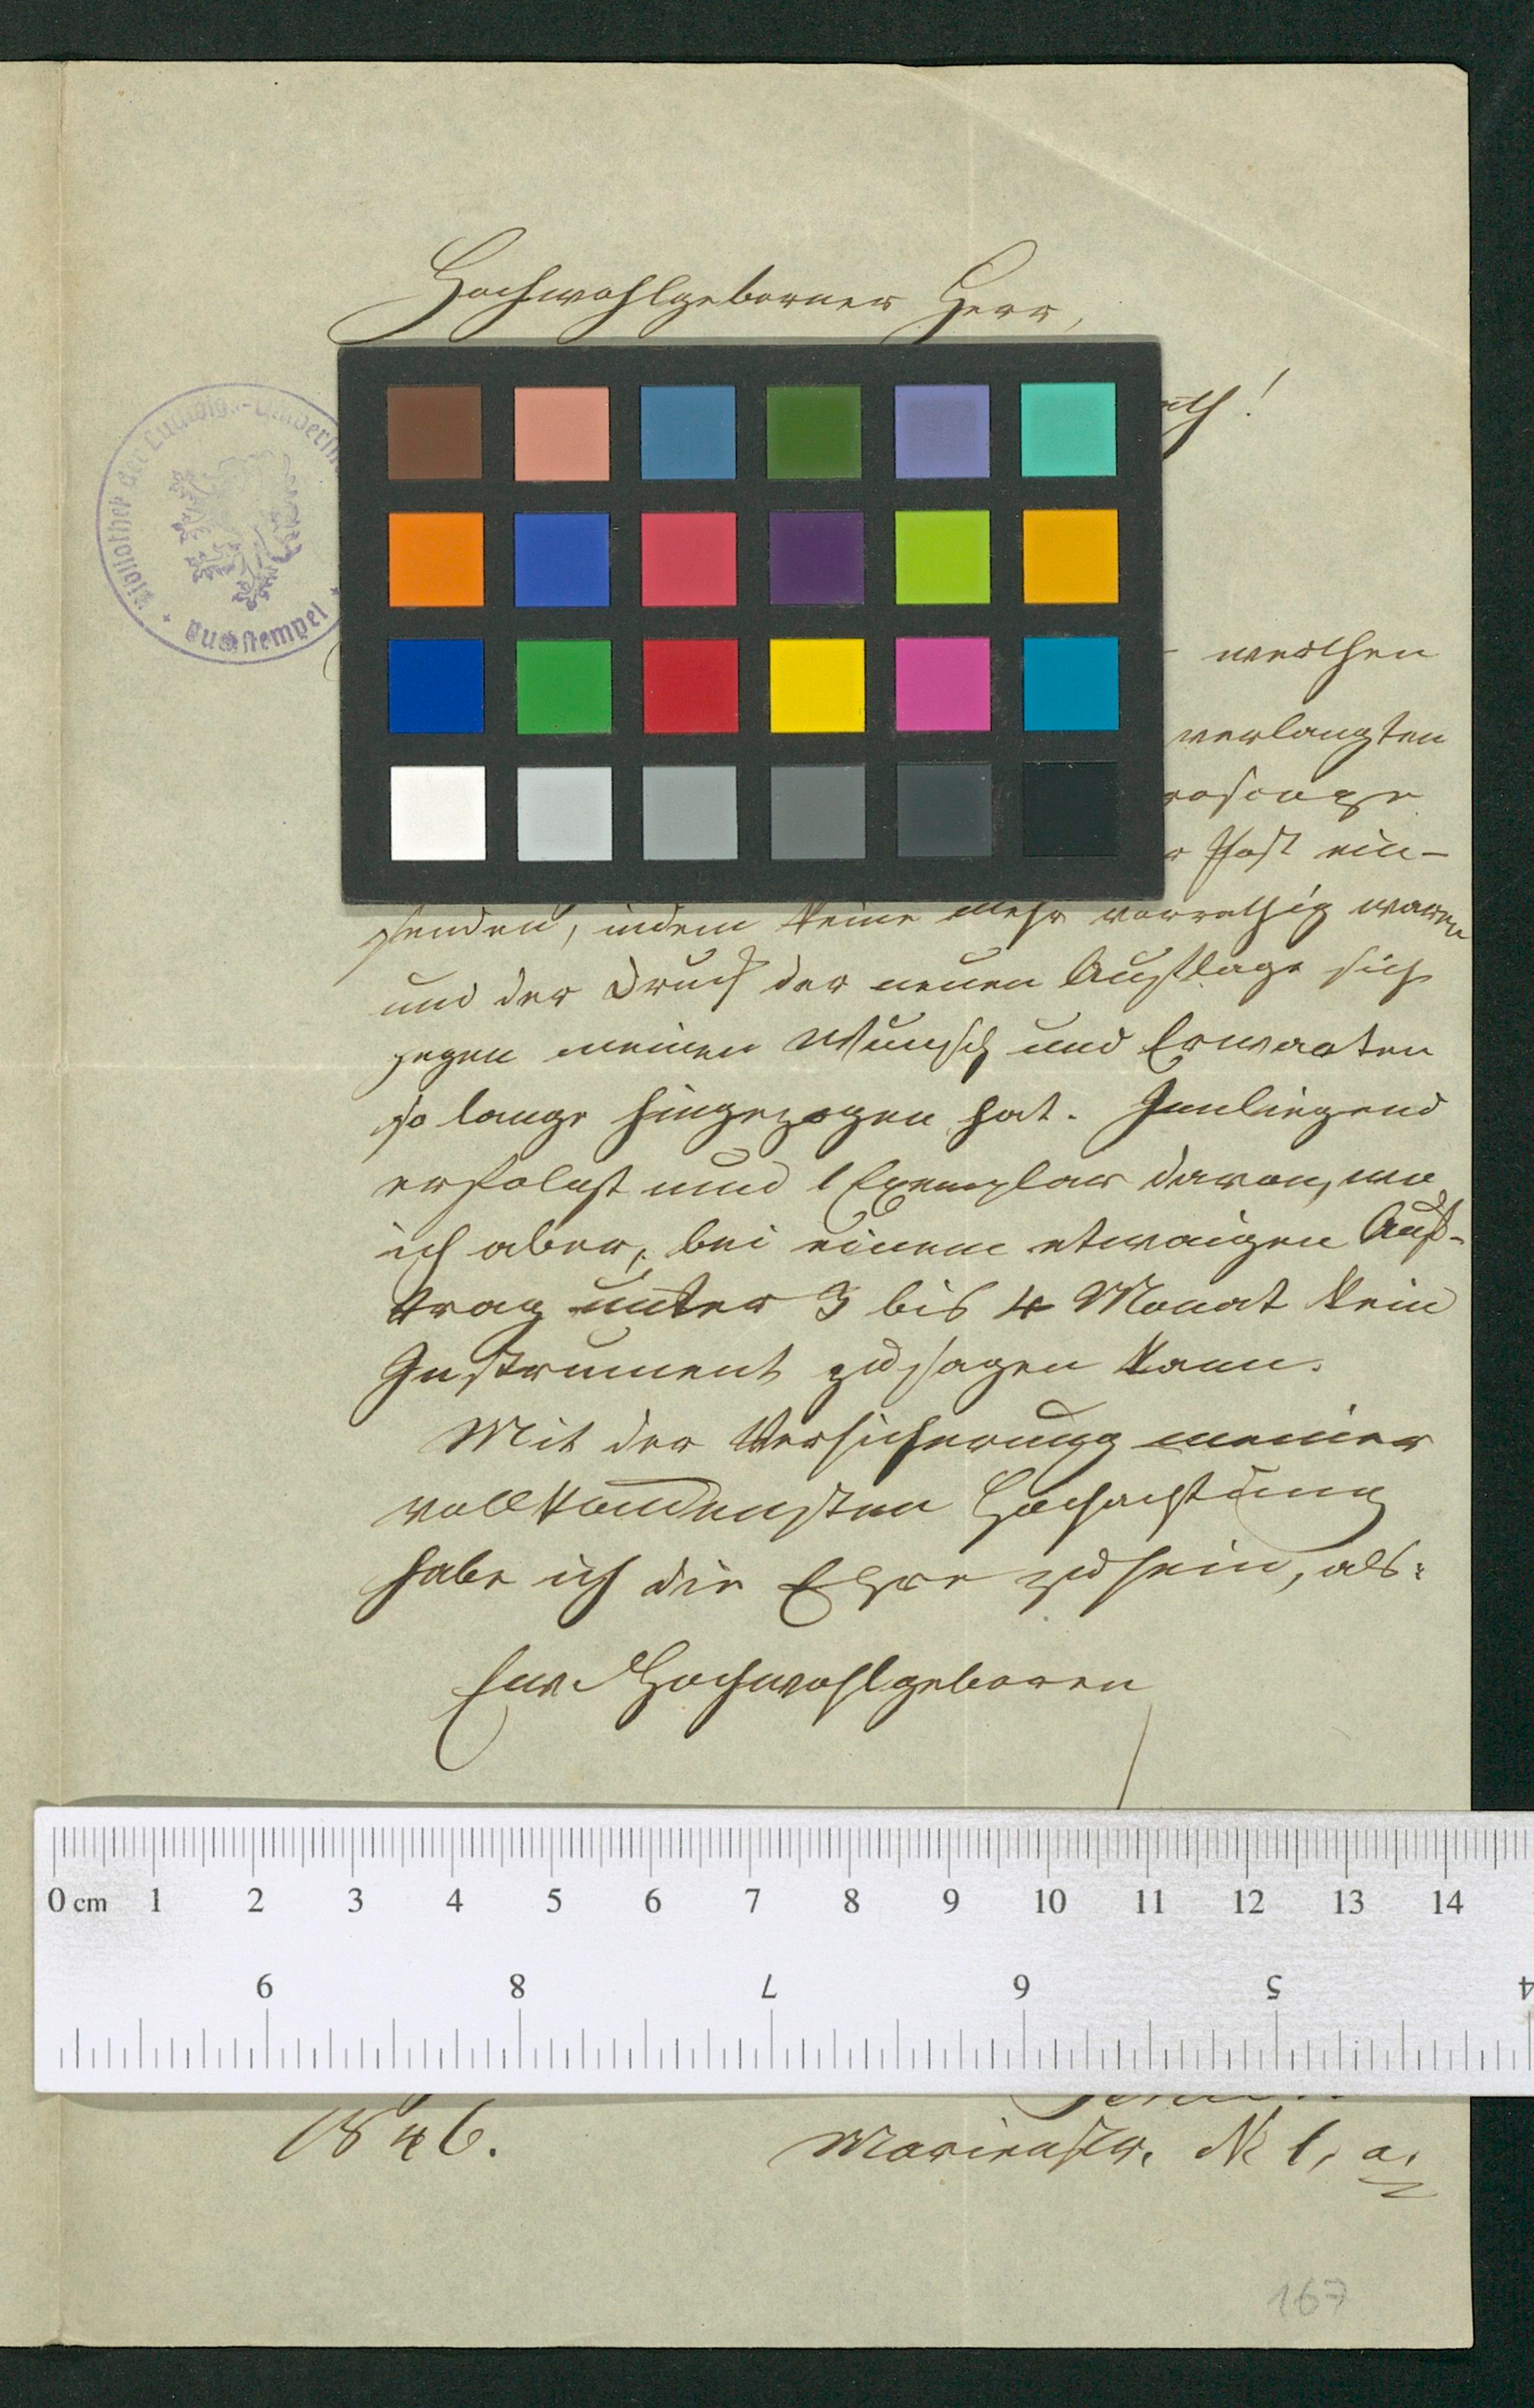 Hochwohlgeborner Herr,
rath!
Bibliothek der Ludwigs-Universit
Buchstempel
werthen
verlangten
r Post ein-
senden, indem keine mehr vorräthig waren
und der Druck der neuen Auflage sich
gegen meinen Wunsch und Erwarten
so lange hingezogen hat. Innliegend
erfolgt nun 1 Exemplar davon, wo
ich aber, bei einem etwaigen Auf-
trag unter 3 bis 4 Monat kein
Instrument zusagen kann.
Mit der Versicherung meiner
vollkommensten Hochachtung
habe ich die Ehre zu sein, als:
Euer Hochwohlgeboren
0 cm 1 2 3 4 5 6 7 8 9 10 11 12 13 14
9 8 7 6 5 4
1846.
Marienstr. N 1, a.
167